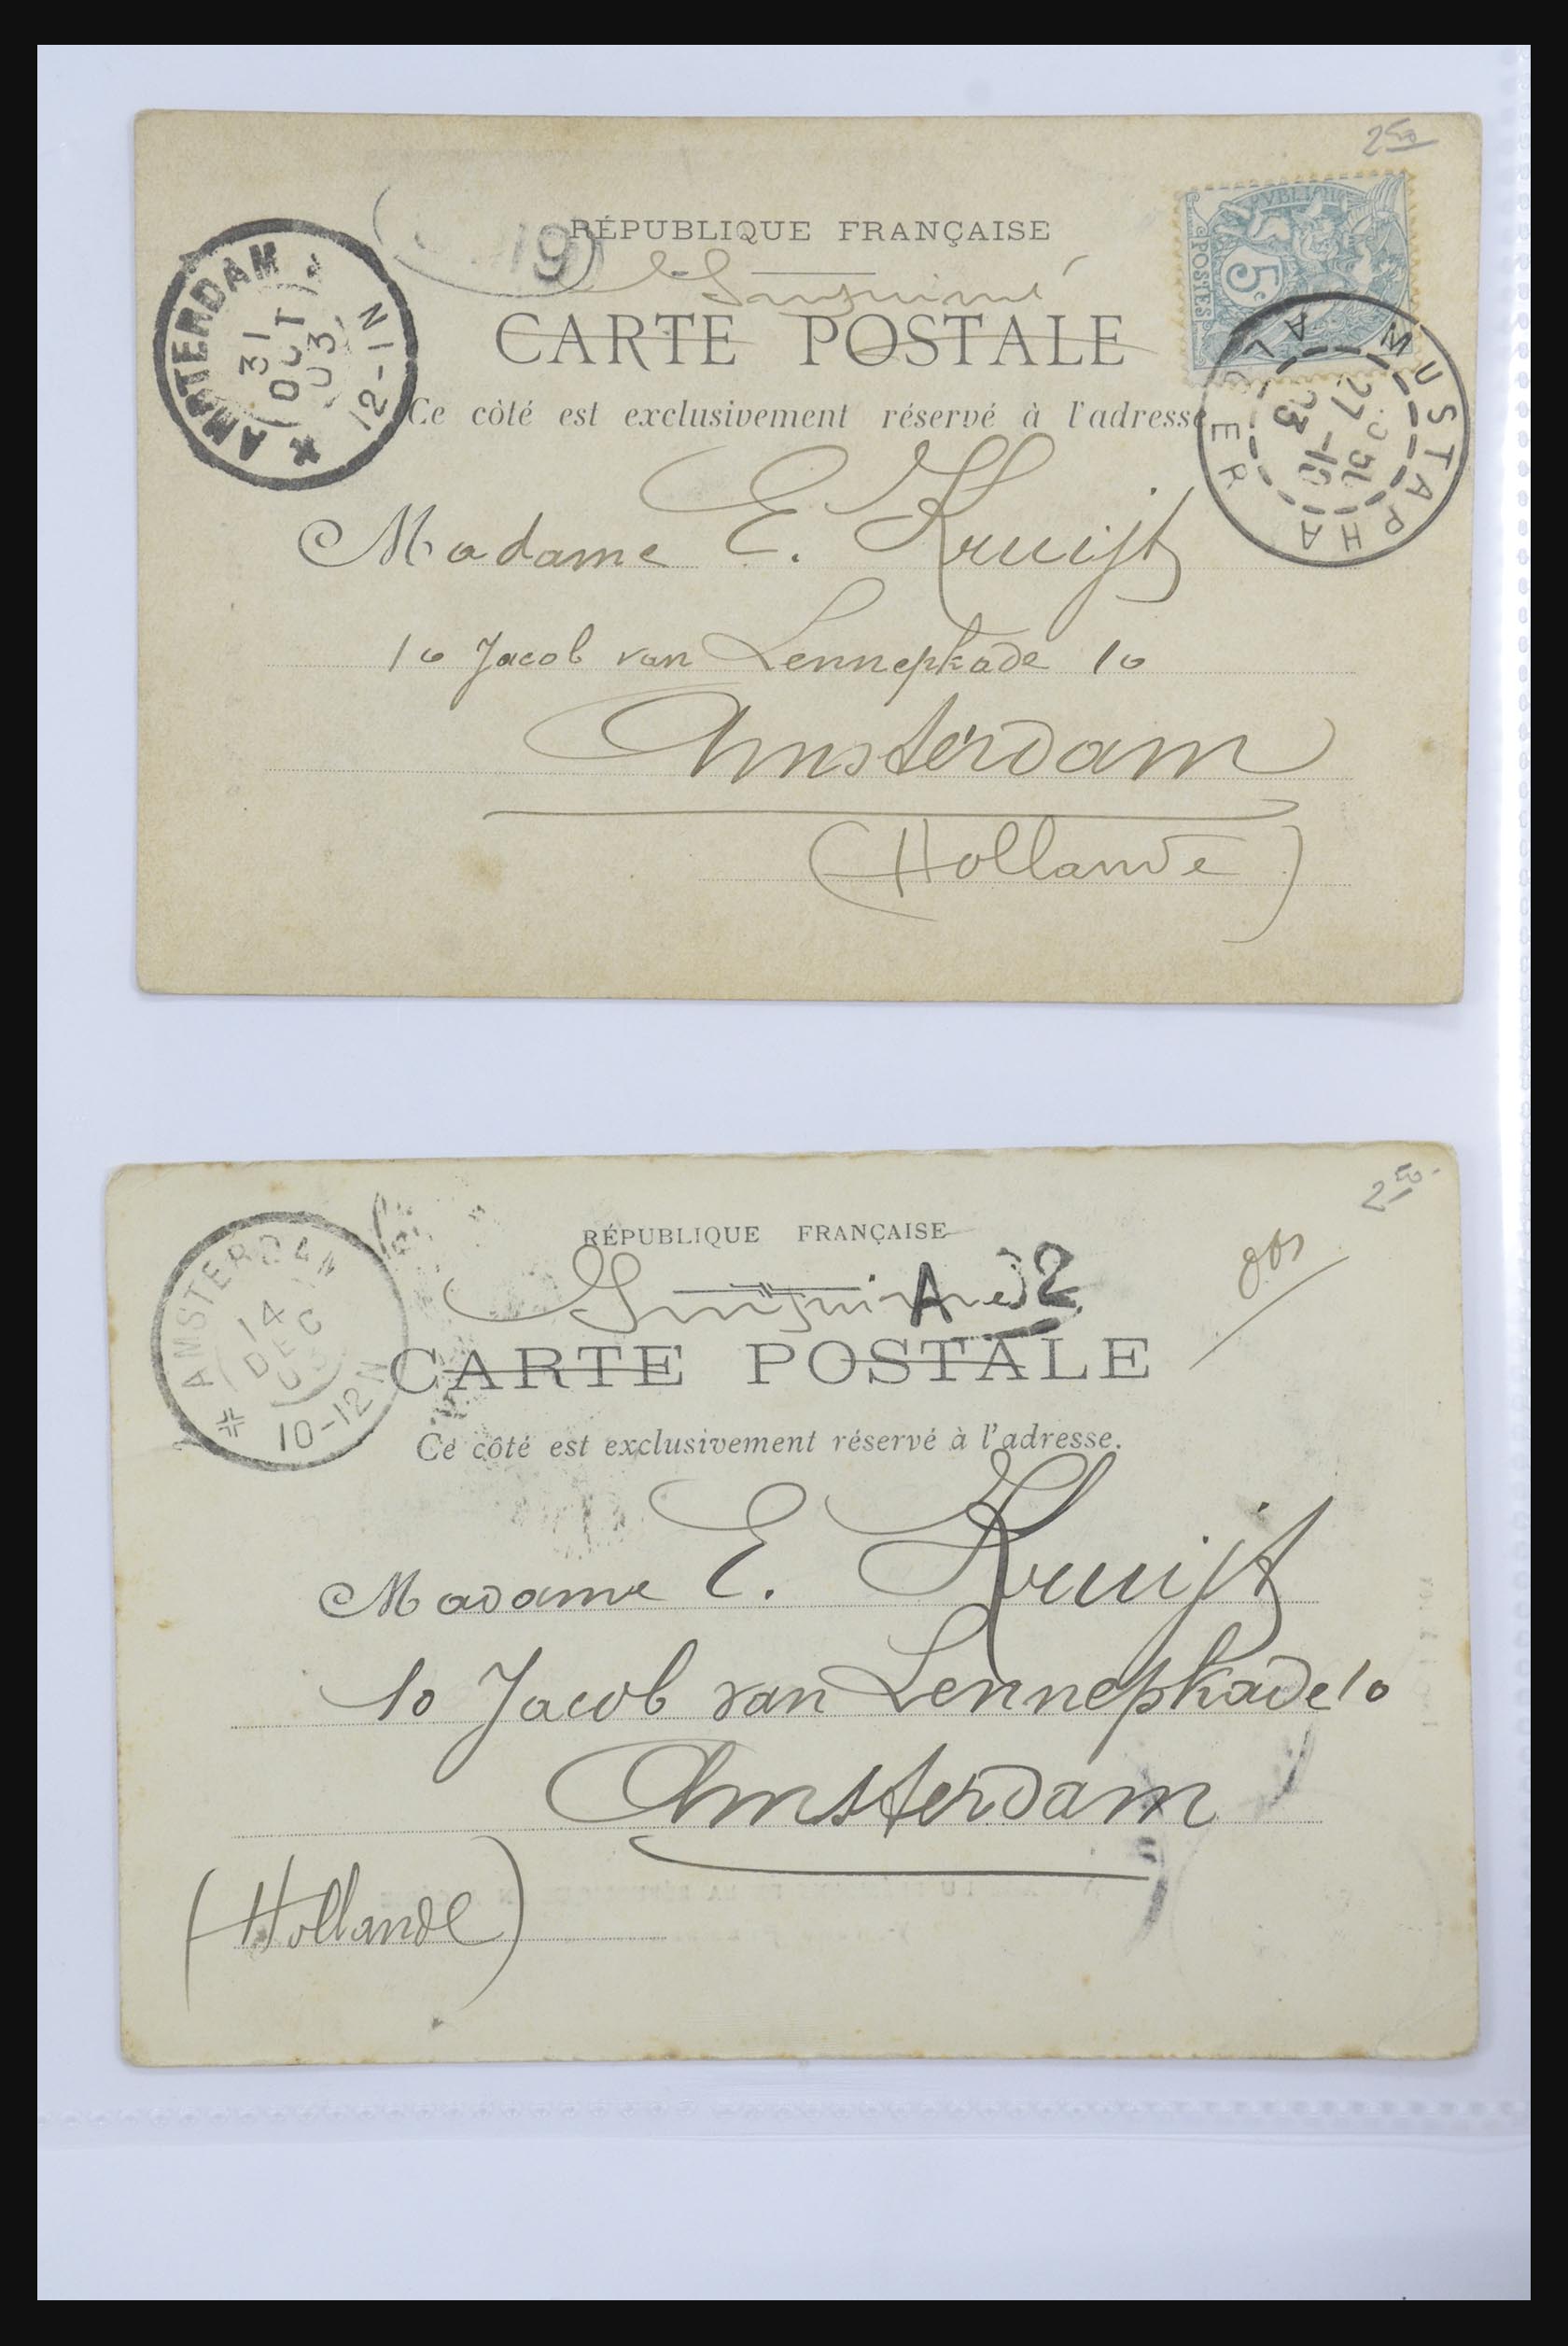 2 50
RÉPUBLIQUE FRANÇAISE
19
Imprimé
CARTE POSTALE
Ce côté est exclusivement réservé à l'adresse
AMSTERDAM
31
OCT
03
12-1N
POSTES
5c
MUSTAPHA
ALGER
27
-10
03
Madame E. Kruijt
10 Jacob van Lennepkade 10
Amsterdam
(Hollande)
2 50
RÉPUBLIQUE FRANÇAISE
Imprimé
A 32
CARTE POSTALE
Ce côté est exclusivement réservé à l'adresse.
AMSTERDAM
14
DEC
10-12N
Madame E. Kruijt
10 Jacob van Lennepkade 10
Amsterdam
(Hollande)